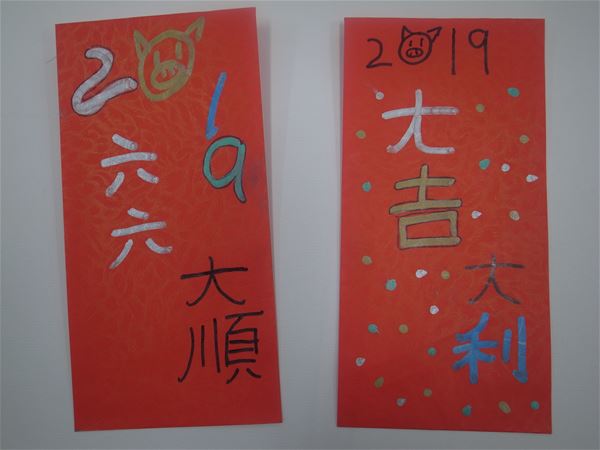 2019
六六
大順
2019
大吉
大利